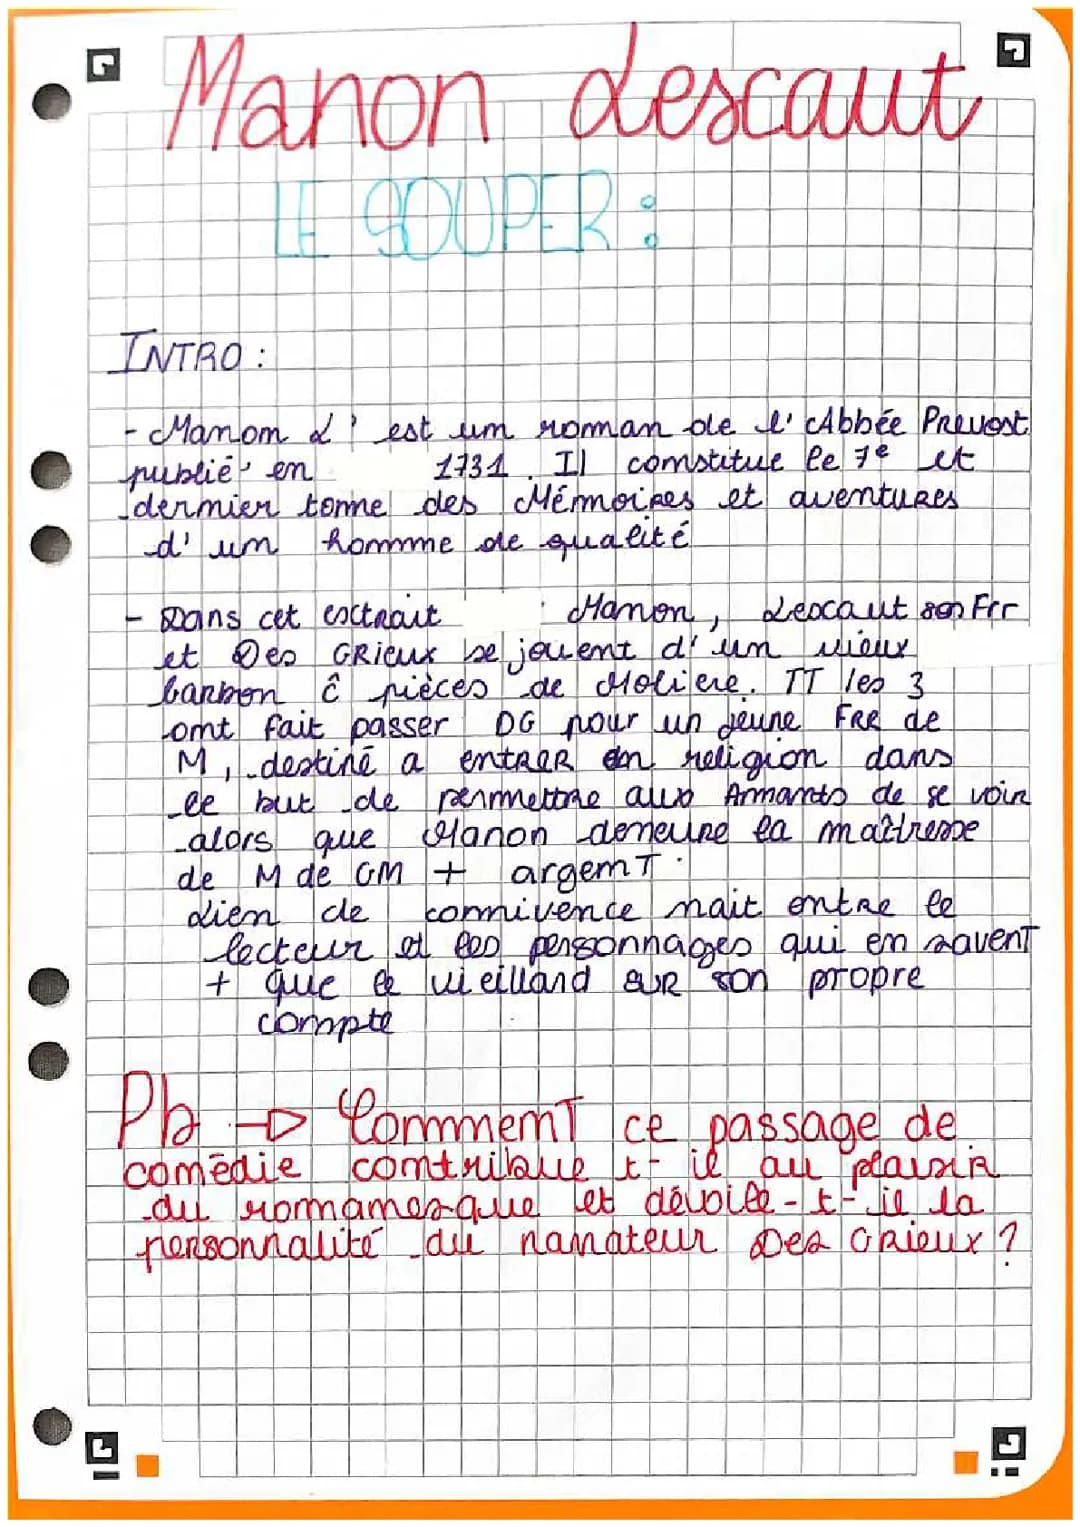 Manon Lescaut
LE SOUPER :
INTRO :
- Manon L' est un roman de l'Abbée Prevost
publié en 1731. Il constitue le 7e et
dernier tome des Mémoires et aventures
d'un homme de qualité
- Dans cet extrait Manon, Lescaut son Frr
et Des GRieux se jouent d'un vieux
barbon ĉ pièces de Moliere. TT les 3
ont fait passer DG pour un jeune FRR de
M, destiné a entRER en religion dans
le but de permettre aux Amants de se voir
alors que Manon demeure la maîtresse
de M de GM + argenT.
Lien de connivence nait entre le
lecteur et les personnages qui en savenT
+ que le vieillard suR son propre
compte
Pb → CommenT ce passage de
comédie contribue t-il au plaisir
du romanesque et dévoile-t-il la
personnalité du narrateur Des Grieux ?